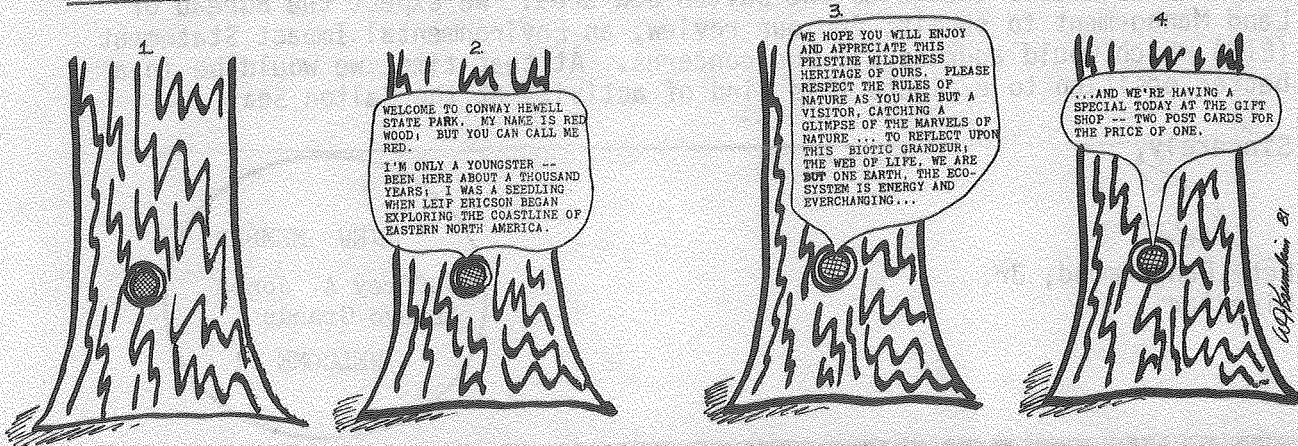 1.
2.
WELCOME TO CONWAY HEWELL
STATE PARK. MY NAME IS RED
WOOD; BUT YOU CAN CALL ME
RED.
I'M ONLY A YOUNGSTER --
BEEN HERE ABOUT A THOUSAND
YEARS; I WAS A SEEDLING
WHEN LEIF ERICSON BEGAN
EXPLORING THE COASTLINE OF
EASTERN NORTH AMERICA.
3.
WE HOPE YOU WILL ENJOY
AND APPRECIATE THIS
PRISTINE WILDERNESS
HERITAGE OF OURS. PLEASE
RESPECT THE RULES OF
NATURE AS YOU ARE BUT A
VISITOR, CATCHING A
GLIMPSE OF THE MARVELS OF
NATURE ... TO REFLECT UPON
THIS BIOTIC GRANDEUR;
THE WEB OF LIFE, WE ARE
BUT ONE EARTH, THE ECO-
SYSTEM IS ENERGY AND
EVERCHANGING...
4.
...AND WE'RE HAVING A
SPECIAL TODAY AT THE GIFT
SHOP -- TWO POST CARDS FOR
THE PRICE OF ONE.
81